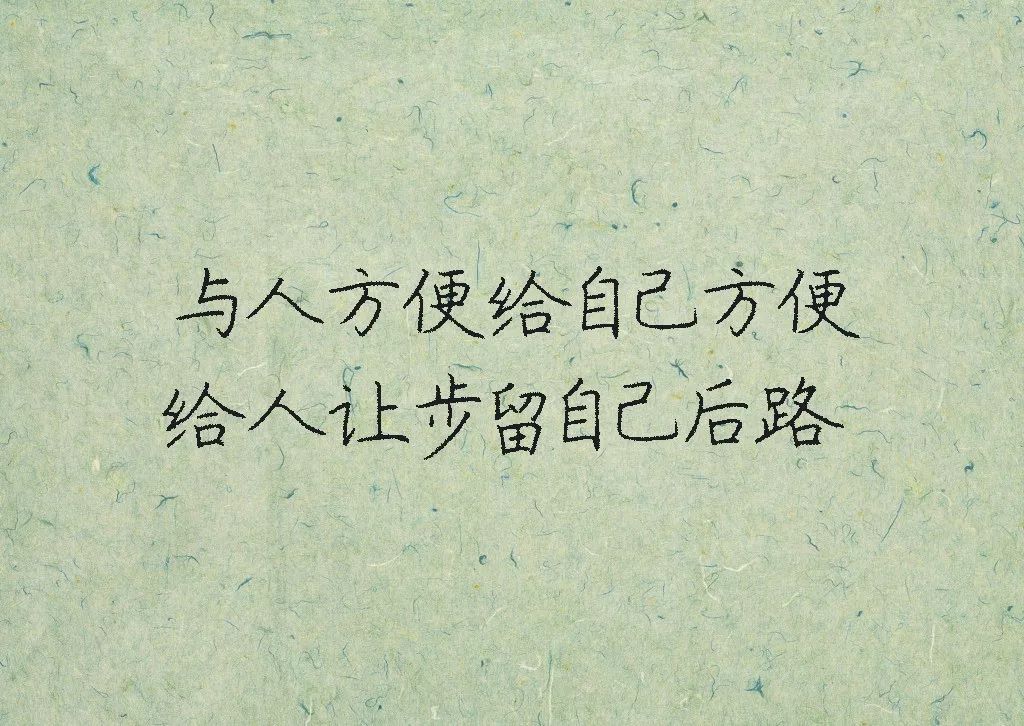 与人方便给自己方便
给人让步留自己后路